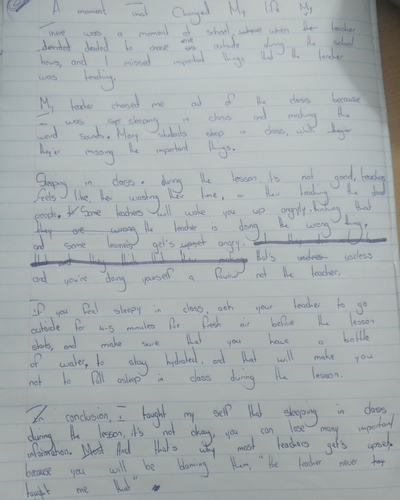 A moment that Changed My life My
There was a moment of school, where when the teacher
decided to chase me outside during the school
hours, and I missed important things that the teacher
was teaching.
My teacher chased me out of the class because
I was sleeping in class and making the
weird sounds. Many students sleep in class, while they're
they're missing the important things.
Sleeping in class during the lesson It's not good, teachers
feels like they wasting their time, or they teaching the dead
people. Some teachers will wake you up angrily, thinking that
they are wrong the teacher is doing the wrong thing,
and some learners get's upset angry.
that's useless
and you're doing yourself a favour not the teacher.
If you feel sleepy in class, ask your teacher to go
outside for 4-5 minutes for fresh air before the lesson
starts, and make sure that you have a bottle
of water, to stay hydrated. and that will make you
not to fall asleep in class during the lesson.
In conclusion, I taught my self that sleeping in class
during the lesson, it's not okay, you can lose many important
information. Most And that's why most teachers get's upset,
because you will be blaming them, "the teacher never
taught me that"